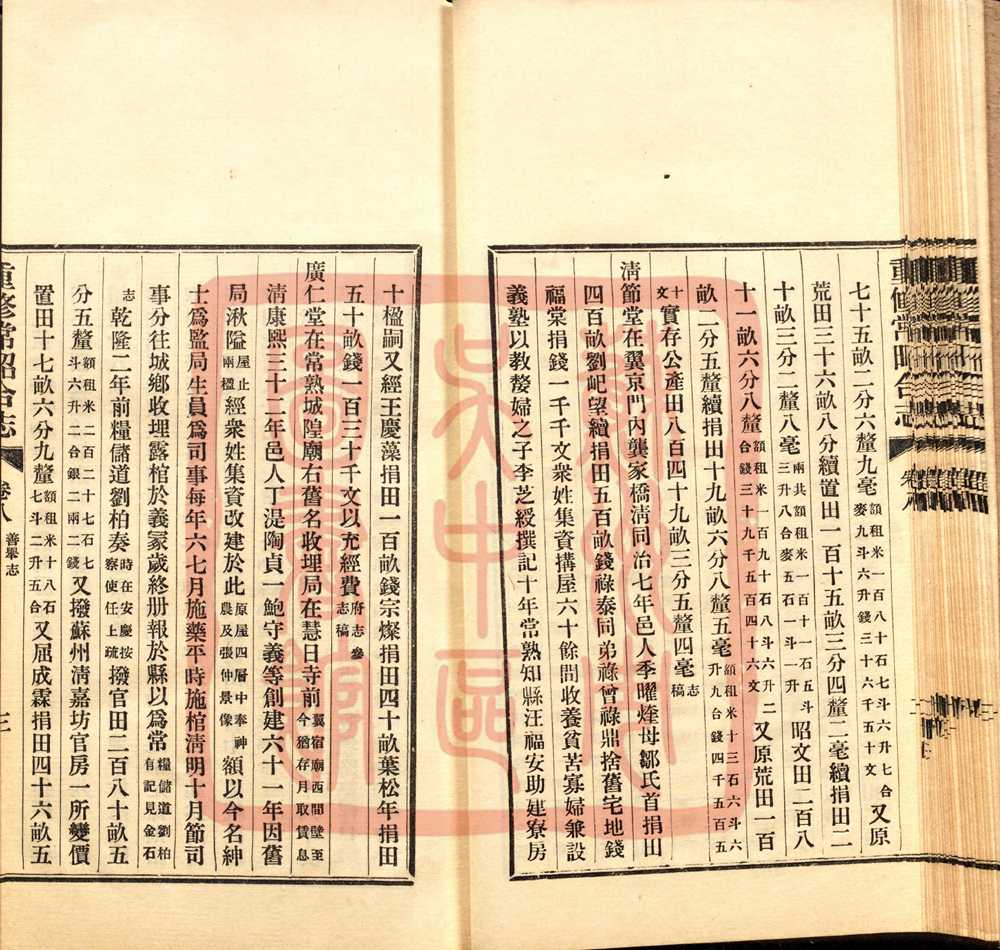 七十五畝二分六釐九毫額租米一百八十石七斗六升七合麥九斗六升錢三十六千五十文又原
荒田三十六畝八分續置田一百十五畝三分四釐二毫續捐田二
十畝三分二釐八毫兩共額租米一百十一石五斗三升八合麥五石一斗一升昭文田二百八
十一畝六分八釐額租米一百九十石八斗六升二合錢三十九千五百四十六文又原荒田一百
畝二分五釐續捐田十九畝六分八釐五毫額租米十三石六斗六升九合錢四千五百五
十文實存公產田八百四十九畝三分五釐四毫志稿
清節堂在翼京門內龔家橋淸同治七年邑人季曜煃母鄒氏首捐田
四百畝劉屺望續捐田五百畝錢祿泰同弟祿曾祿鼎捨舊宅地錢
福棠捐錢一千千文衆姓集資搆屋六十餘間收養貧苦寡婦兼設
義塾以教嫠婦之子李芝綬撰記十年常熟知縣汪福安助建寮房
十楹嗣又經王慶藻捐田一百畝錢宗燦捐田四十畝葉松年捐田
五十畝錢一百三十千文以充經費府志參志稿
廣仁堂在常熟城隍廟右舊名收理局在慧日寺前翼宿廟西間壁至今猶存月取賃息
淸康熙三十二年邑人丁湜陶貞一鮑守義等創建六十一年因舊
局湫隘屋止兩楹經衆姓集資改建於此原屋四層中奉神農及張仲景像額以今名紳
士爲監局生員爲司事每年六七月施藥平時施棺淸明十月節司
事分往城鄉收埋露棺於義冢歲終册報於縣以爲常糧儲道劉柏有記見金石
志乾隆二年前糧儲道劉柏奏時在安慶按察使任上疏撥官田二百八十畝五
分五釐額租米二百二十七石七斗六升二合銀二兩二錢又撥蘇州淸嘉坊官房一所變價
置田十七畝六分九釐額租米十八石七斗二升五合又屈成霖捐田四十六畝五
重修常昭合志
卷八
善舉志
三